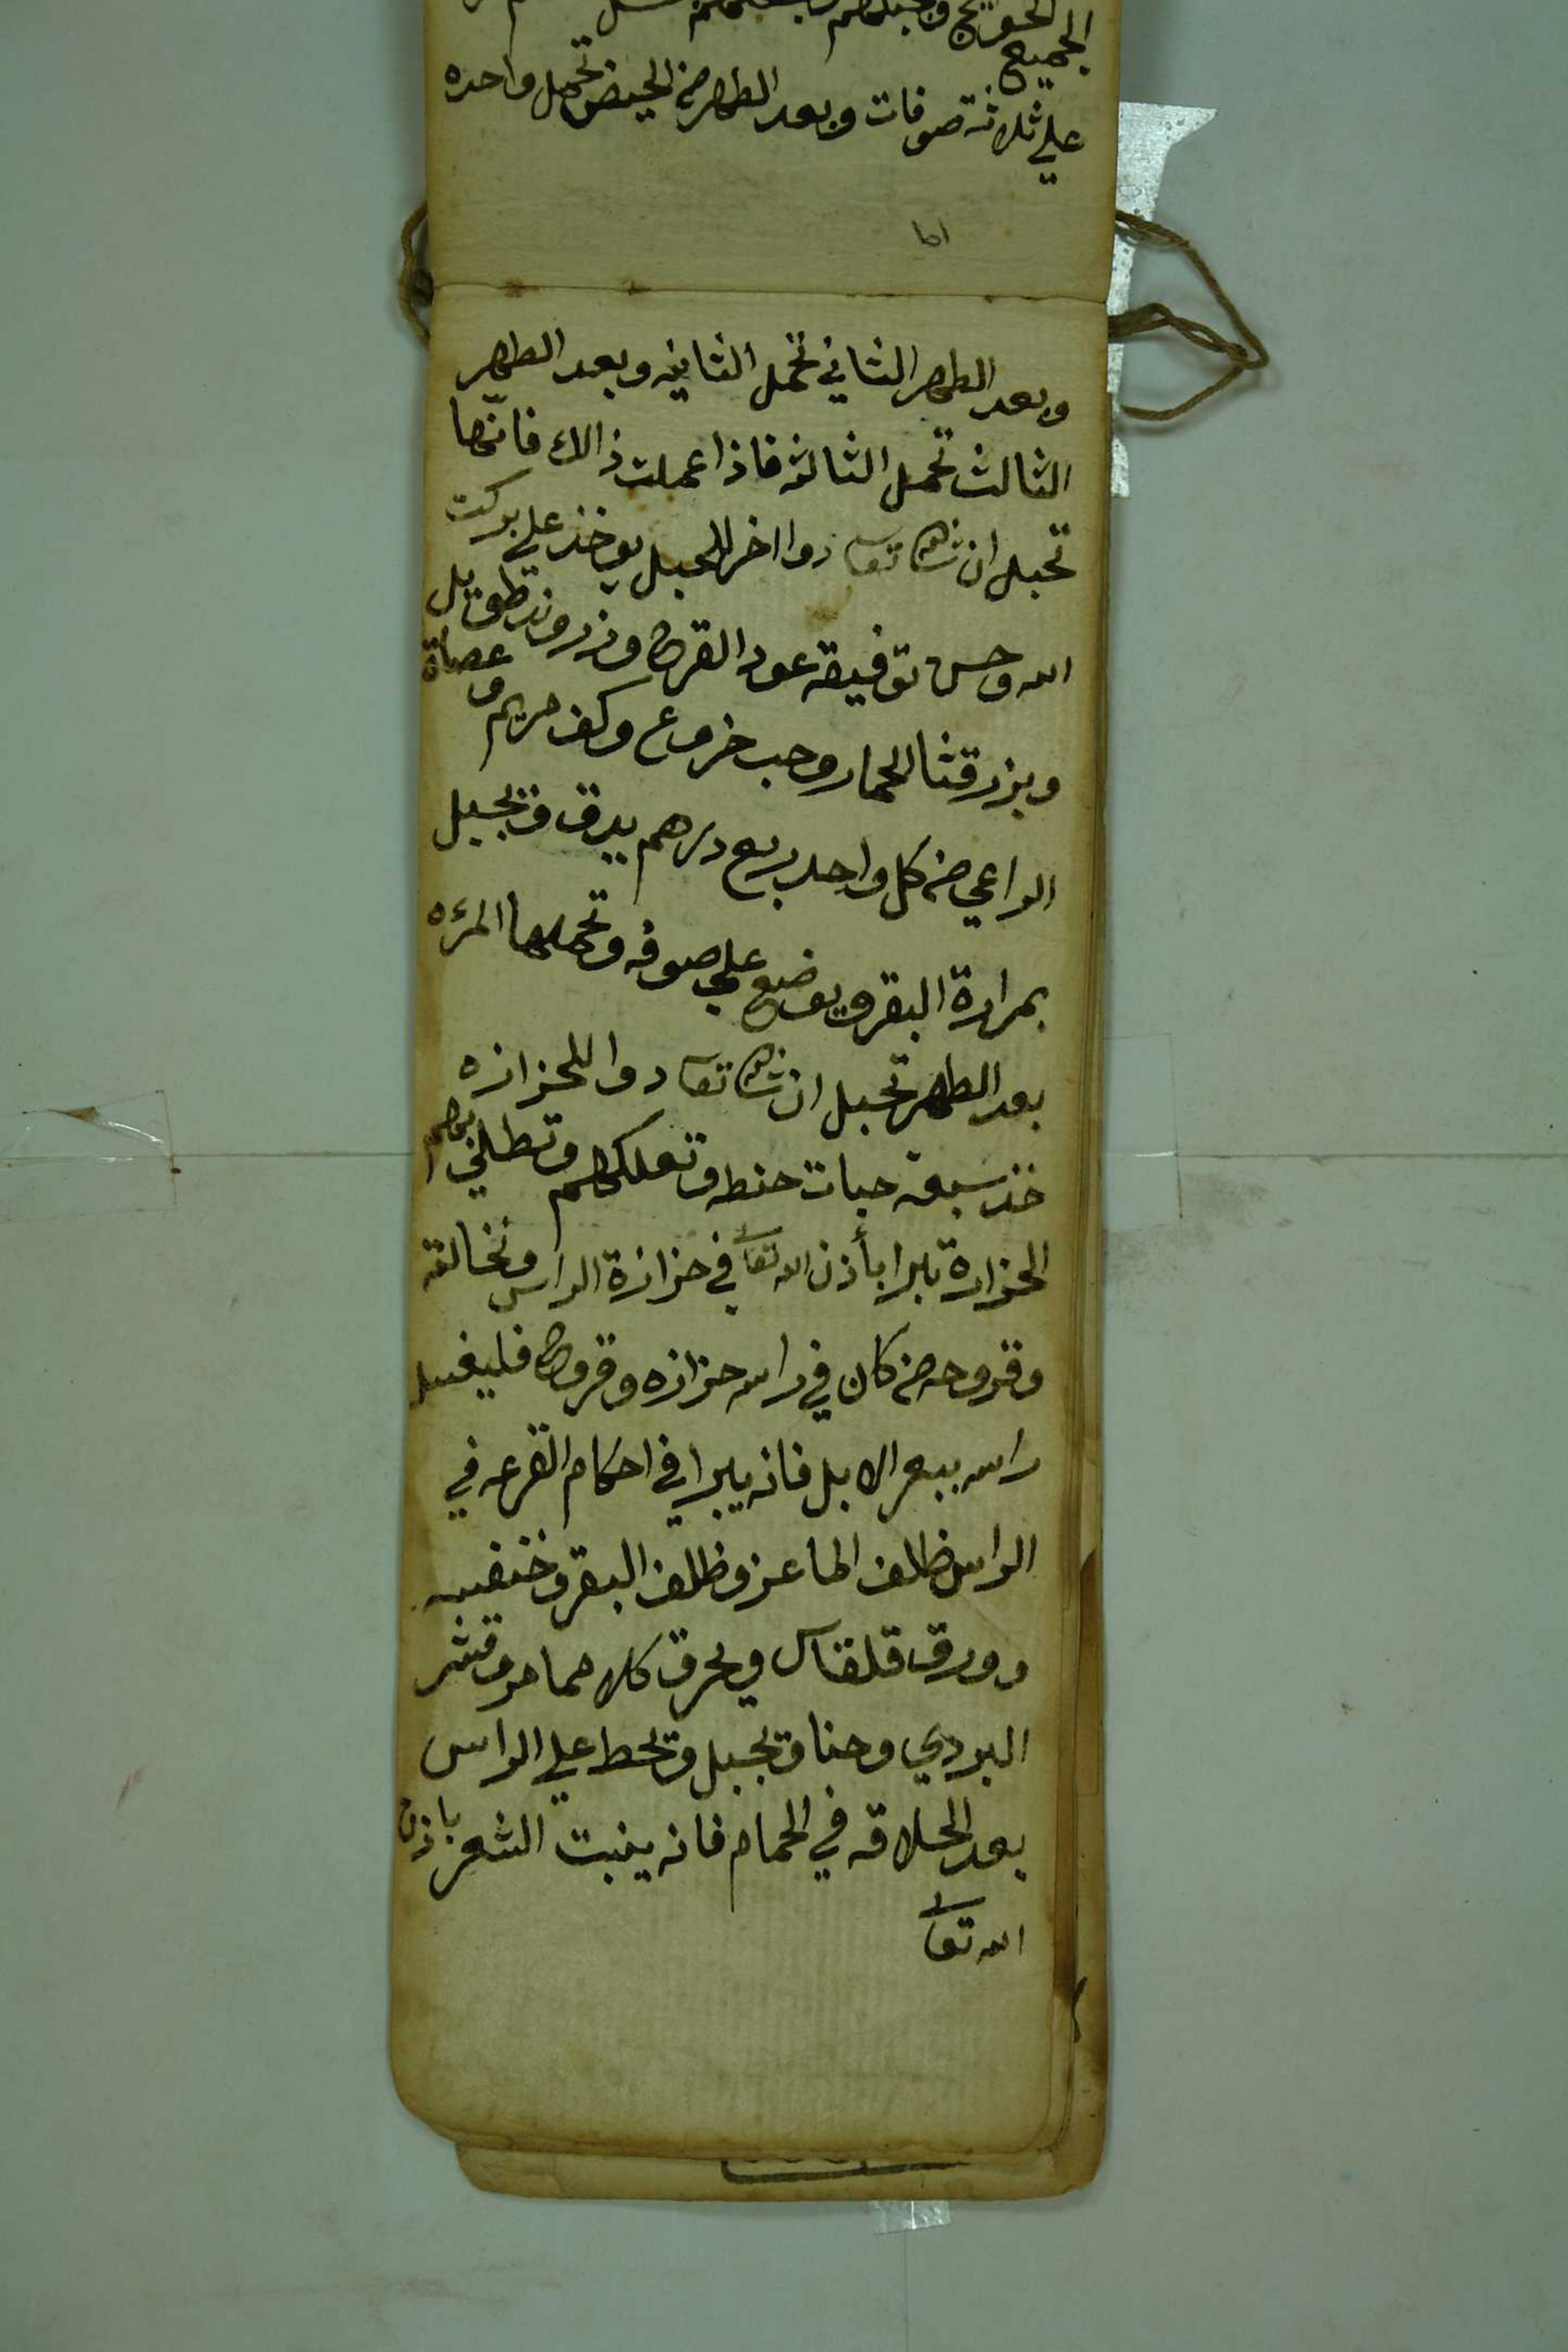 الجميع
علي ثلاثة صوفات وبعد الطهر من الحيض تحمل واحده
وبعد الطهر الثاني تحمل الثانيه وبعد الطهر
الثالث تحمل الثالثه فاذا عملت ذالك فانها
تحبل ان شا الله تعا دوا اخر للحبل يوخذ علي بركت
الله وحسن توفيقه عود القرح وزروند طويل
وبزر قثا الحمار وحب خروع وكف مريم وعصاة
الراعي من كل واحد ربع درهم يدق وتجبل
بمرارة البقر ويوضع علي صوفه وتحملها المرءه
بعد الطهر تحبل ان شا الله تعا دوا للحزازه
خذ سبعة حبات حنطه وتعلكهم وتطلي بهم
الحزازة تبرا بأذن الله تعا في حزازة الراس ونخالته
وقروحه من كان في راسه حزازه وقروح فليغسل
راسه ببعر الابل فانه يبرا في احكام القرعه في
الراس ظلف الماعز وظلف البقر وخنفسه
وورق قلقاس ويحرق كلا حماحر وقشر
البردي وحنا وتجبل وتحط علي الراس
بعد الحلاقه في الحمام فانه ينبت الشعر باذن
الله تعا